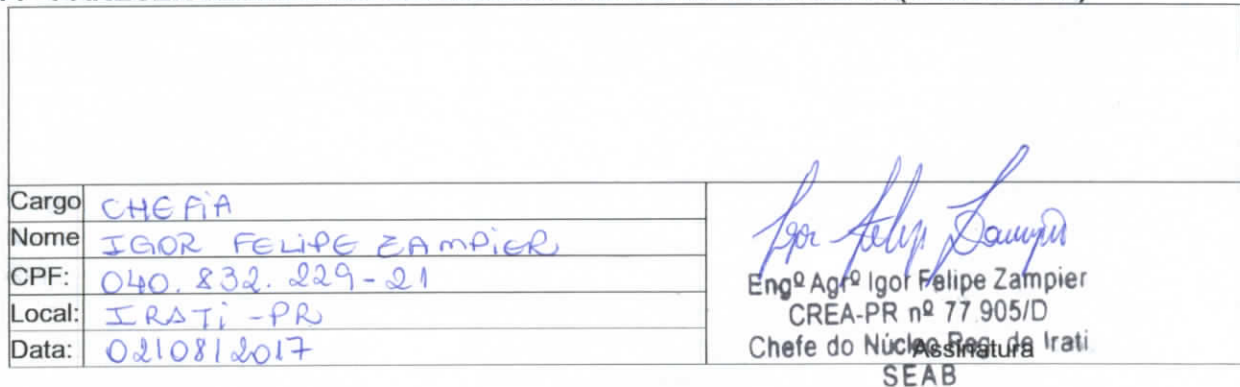 Cargo CHEFIA
Nome IGOR FELIPE ZAMPIER
CPF: 040.832.229-21
Local: IRATI-PR
Data: 02/08/2017
Igor Felipe Zampier
Engº Agrº Igor Felipe Zampier
CREA-PR nº 77.905/D
Chefe do Núcleo Reg. de Irati
Assinatura
SEAB